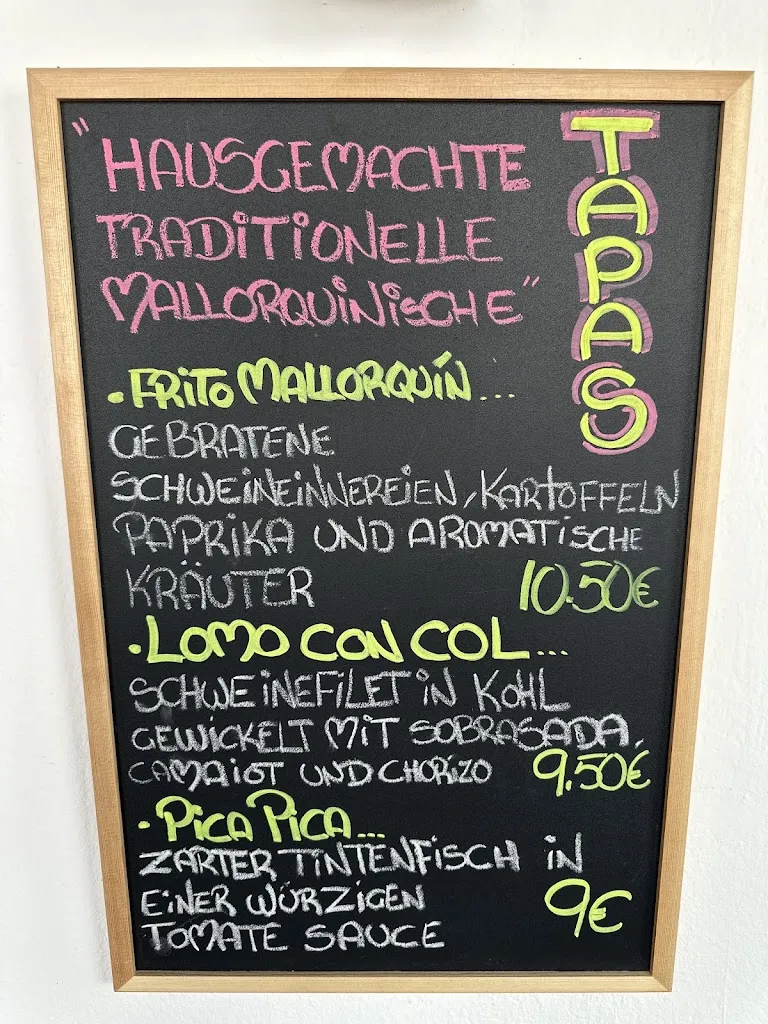 "HAUSGEMACHTE
TRADITIONELLE
MALLORQUINISCHE"
TAPAS
·FRITO MALLORQUÍN...
GEBRATENE
SCHWEINEINNEREIEN, KARTOFFELN
PAPRIKA UND AROMATISCHE
KRÄUTER 10.50€
·LOMO CON COL...
SCHWEINEFILET IN KOHL
GEWICKELT MIT SOBRASADA,
CAMAIOT UND CHORIZO 9.50€
·PICA PICA...
ZARTER TINTENFISCH IN
EINER WÜRZIGEN 9€
TOMATE SAUCE